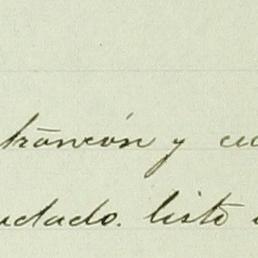 trancón y cu
udado. listo